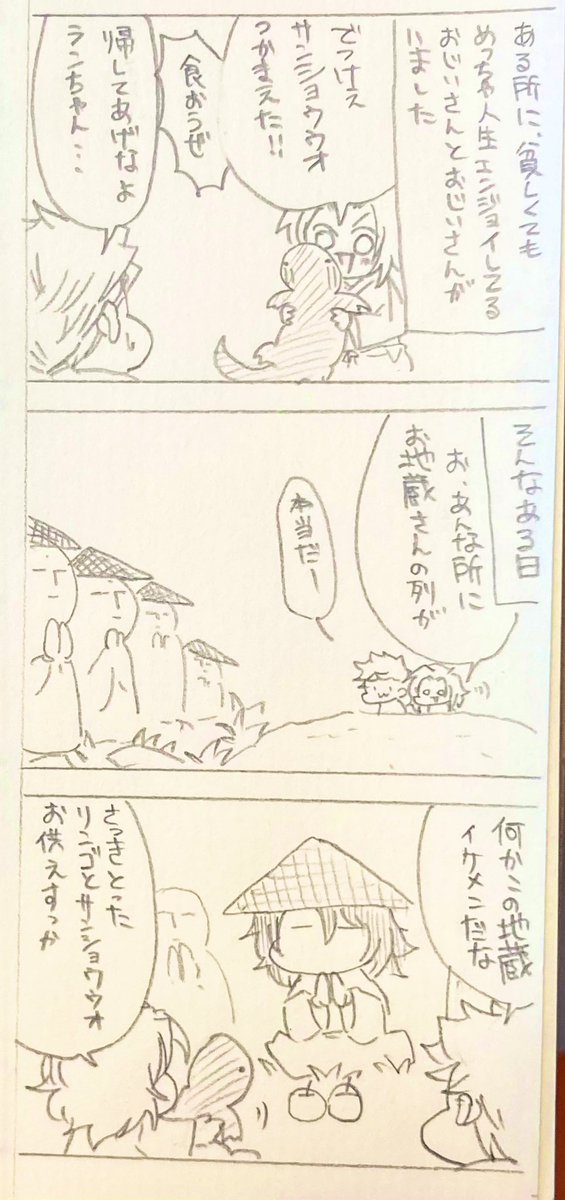 ある所に、貧しくても
めっちゃ人生エンジョイしてる
おじいさんとおじいさんが
いました
でっけぇ
サンショウウオ
つかまえた!!
食おうぜ
帰してあげなよ
ランちゃん…
そんなある日
お、あんな所に
お地蔵さんの列が
本当だー
何かこの地蔵
イケメンだな
さっきとった
リンゴとサンショウウオ
お供えすっか